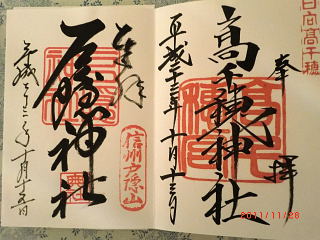 日向高千穂
奉拝
高千穂神社
平成二十三年十月十三日
奉拝
信州戸隠山
戸隠神社
平成二十三年十月十五日
2011/11/28